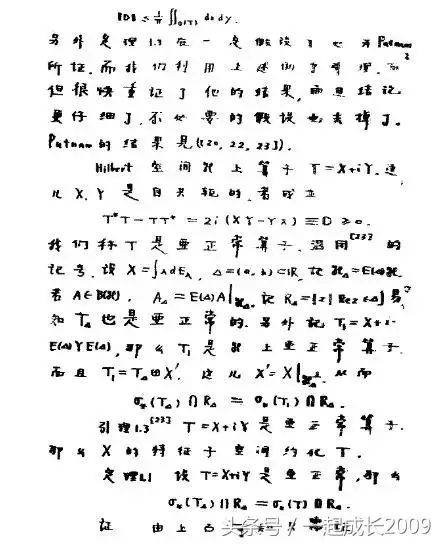 ‖D‖ ≤ 1/π ∬σ(T) dxdy.
另外定理1.3在一定假设下也为Putnam
所证. 而我们利用上述的引理, 不
但很快重证了他的结果, 而且结论
更仔细了, 不必要的假设也去掉了.
Putnam的结果是([20, 22, 23]).
Hilbert 空间H上算子 T=X+iY. 这
儿 X, Y 是自共轭的, 若成立
T*T-TT* = 2i(XY-YX) ≡ D ≥ 0.
我们称T是亚正常算子. 沿用[23]的
记号, 设 X=∫λdEλ, Δ=(a, b)⊂R, 记 HΔ=E(Δ)H
若 A∈B(H), AΔ=E(Δ)A|HΔ. 记 RΔ={z|Rez∈Δ} 易
知TΔ也是亚正常的. 另外记 T1=X+i·
E(Δ)YE(Δ), 那么 T1是H上亚正常算子.
而且 T1=TΔ⊕X', 这儿 X'=X| 从而
(TΔ)∩RΔ = (T1)∩RΔ.
引理1.3[23] T=X+iY是亚正常算子.
那么X的特征子空间约化T.
定理1.1 设T=X+iY是亚正常, 那么
(TΔ)∩RΔ = (T)∩RΔ.
证 由上
头条号/一起成长2009